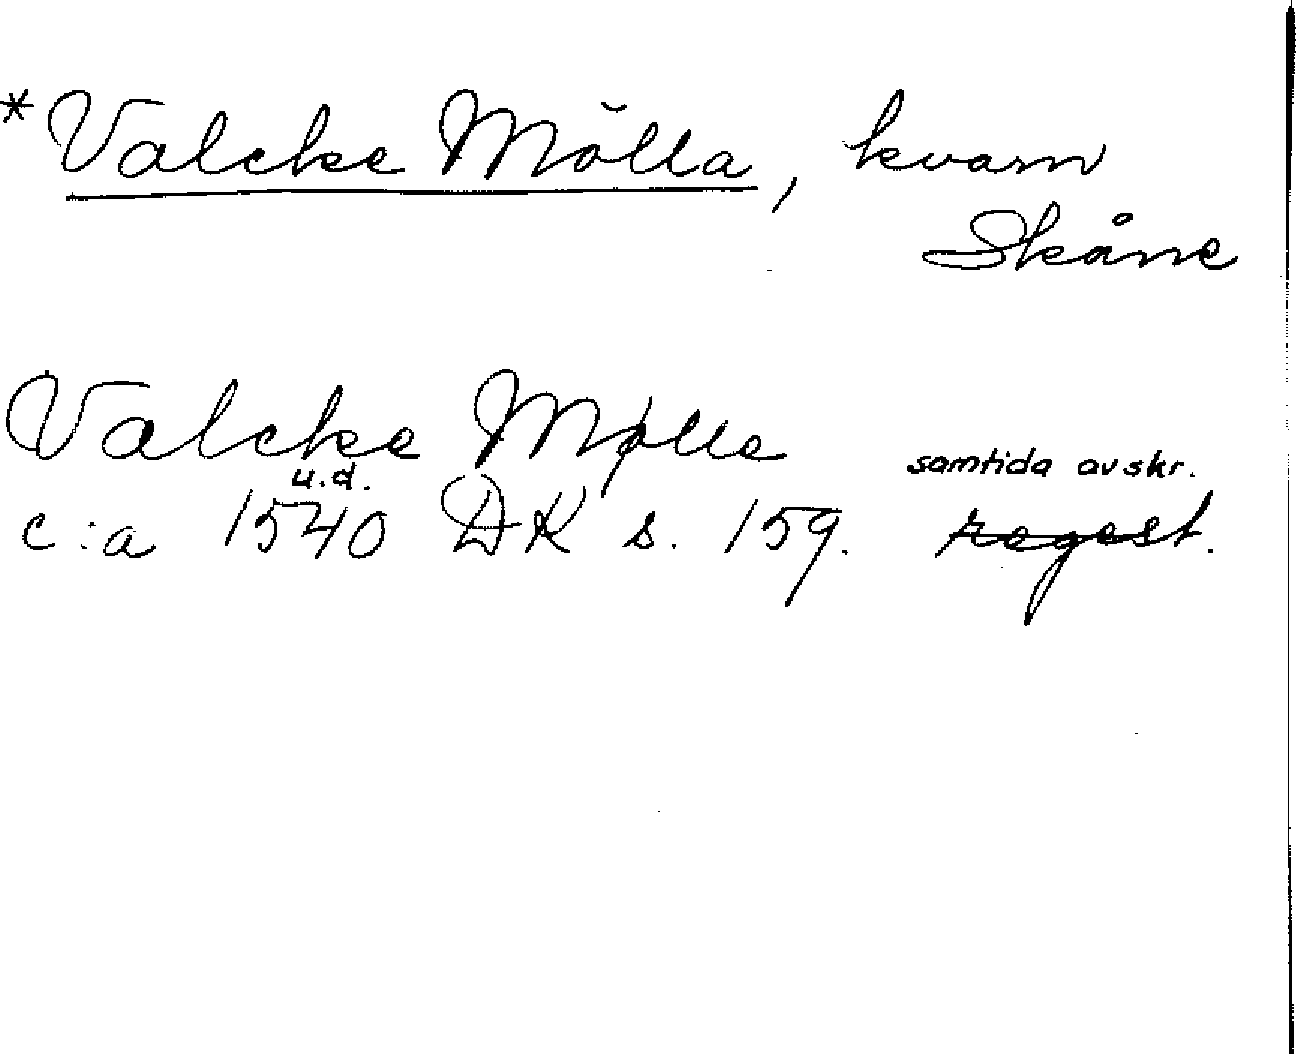 *Valcke Mölla, kvarn
Skåne
Valcke Mølle
u.d. samtida avskr.
c:a 1540 DK s. 159. regest.